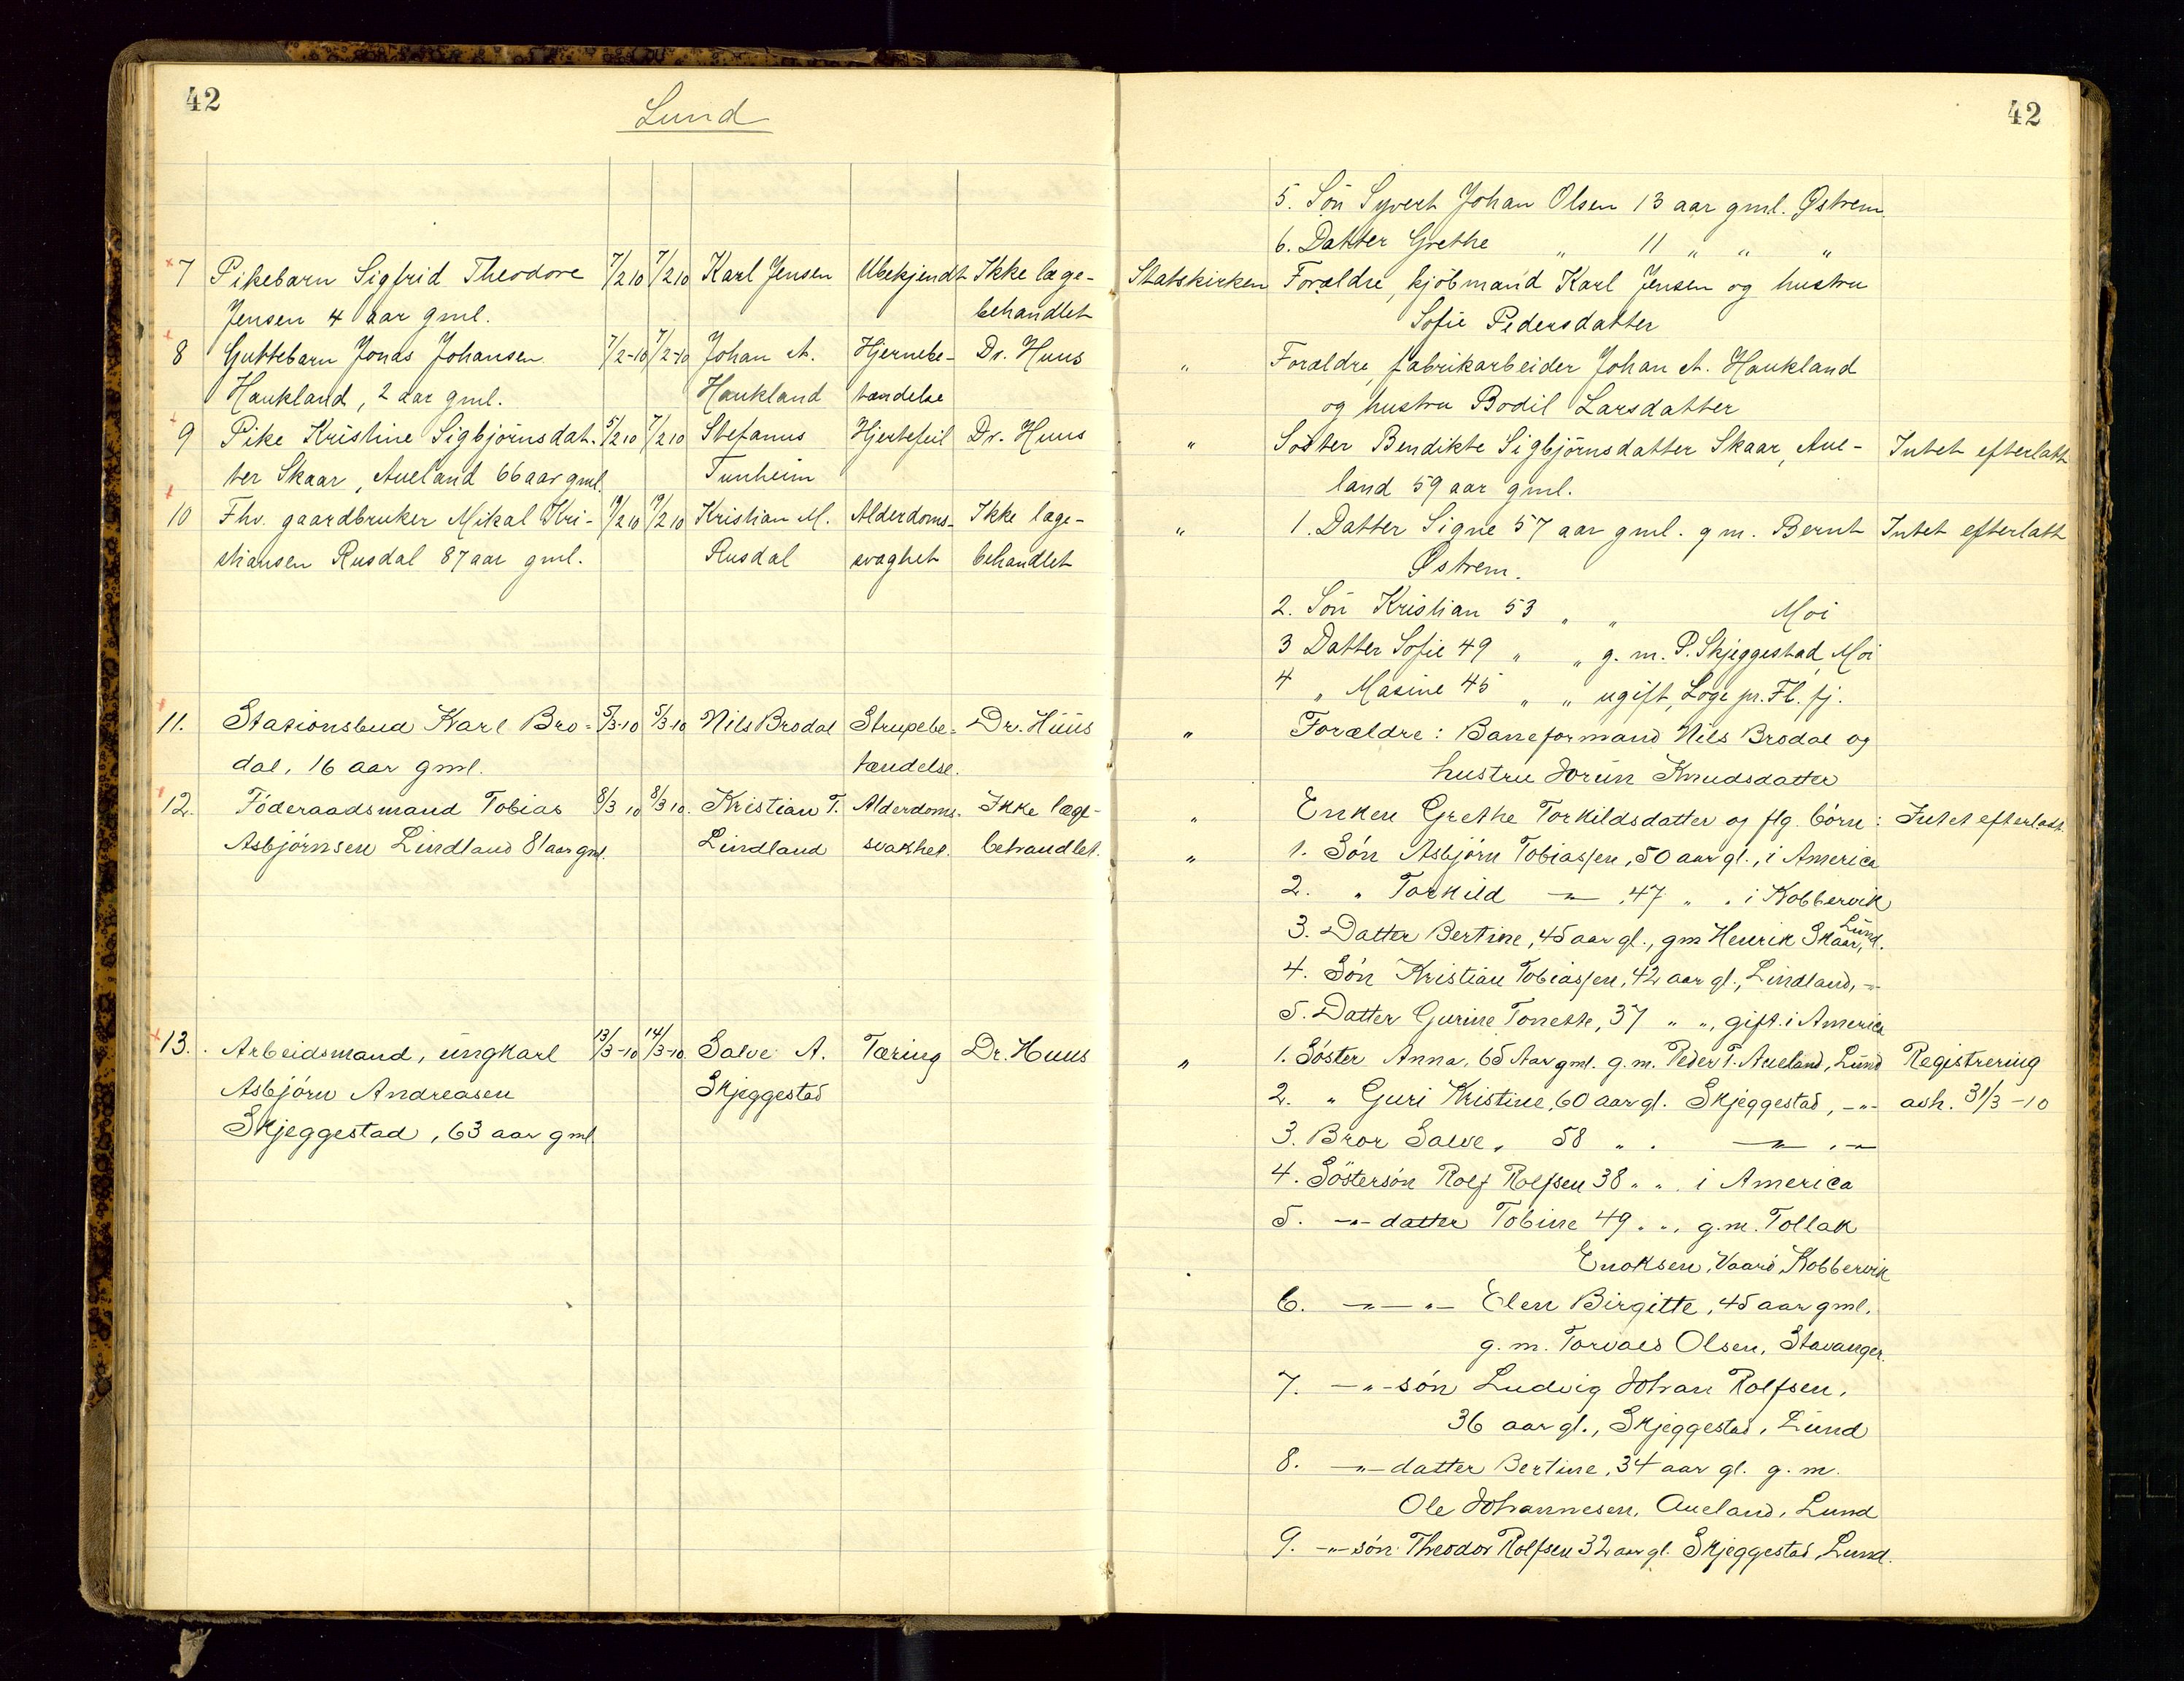 42
Lund
7 Pikebarn Sigfrid Theodore 7/2 10 7/2 10 Karl Jensen Ubekjendt Ikke læge-
Jensen 4 aar gml. behandlet
8 Guttebarn Jonas Johansen 7/2-10 7/2-10 Johan A. Hjernebe- Dr. Huus
Haukland, 2 aar gml. Haukland tændelse
9 Pike Kristine Sigbjørnsdat- 5/2 10 7/2 10 Stefanus Hjertefeil Dr. Huus
ter Skaar, Aueland 66 aar gml. Tunheim
10 Fhv. gaardbruker Mikal Kri- 19/2 10 19/2 10 Kristian M. Alderdoms- Ikke læge-
stiansen Rusdal 87 aar gml. Rusdal svaghet behandlet
11. Stasionsbud Karl Bro- 5/3-10 5/3-10 Nils Brodal Strupebe- Dr. Huus
dal, 16 aar gml. tændelse.
12. Föderaadsmand Tobias 8/3 10 8/3 10. Kristian T. Alderdoms- Ikke læge-
Asbjörnsen Lindland 81 aar gml. Lindland svakhet. behandlet.
13. Arbeidsmand, ungkarl 13/3-10 14/3-10 Salve A. Tæring Dr. Huus
Asbjörn Andreasen Skjeggestad
Skjeggestad, 63 aar gml
42
5. Søn Syvert Johan Olsen 13 aar gml. Østrem
6. Datter Grethe " 11 " " "
Statskirken Forældre, kjøbmand Karl Jensen og hustru
Sofie Pedersdatter
" Forældre, fabrikarbeider Johan A. Haukland
og hustru Bodil Larsdatter
" Søster Bendikte Sigbjørnsdatter Skaar, Aue- Intet efterlatt
land 59 aar gml.
" 1. Datter Signe 57 aar gml. g m. Bernt Intet efterlatt
Østrem.
2. Søn Kristian 53 " " Moi
3 Datter Sofie 49 " " g. m. P. Skjeggestad, Moi
4 " Masine 45 " " ugift, Loge pr. Fl. fj.
" Forældre: Baneformand Nils Brodal og
hustru Jorun Knudsdatter
" Enken Grethe Torkildsdatter og flg. börn: Intet efterlatt.
" 1. Søn Asbjörn Tobiassen, 50 aar gl., i America
2. " Torkild —"— 47 " " i Kobbervik
3. Datter Bertine, 45 aar gl., gm Henrik Skaar, Lund.
4. Sön Kristian Tobiassen, 42 aar gl., Lindland, -"-
5. Datter Gurine Tonette, 37 " ", gift i America
" 1. Söster Anna, 65 Aar gml. g. m. Peder T. Aueland, Lund Registrering
2. " Guri Kristine, 60 aar gl. Skjeggestad, -"- avh. 31/3-10
3. Bror Salve, 58 " " —"— , -"-
4. Söstersön Rolf Rolfsen 38 " " i America
5. -"- datter Tobine 49 " ", g. m. Tollak
Enoksen, Kobbervik
6. -"- -"- Elen Birgitte, 45 aar gml.
g. m. Torvald Olsen, Stavanger.
7. -"- sön Ludvig Johan Rolfsen,
36 aar gl., Skjeggestad, Lund
8. -"- datter Bertine, 34 aar gl. g. m.
Ole Johannesen, Aueland, Lund
9. -"- sön Theodor Rolfsen 32 aar gl. Skjeggestad, Lund.